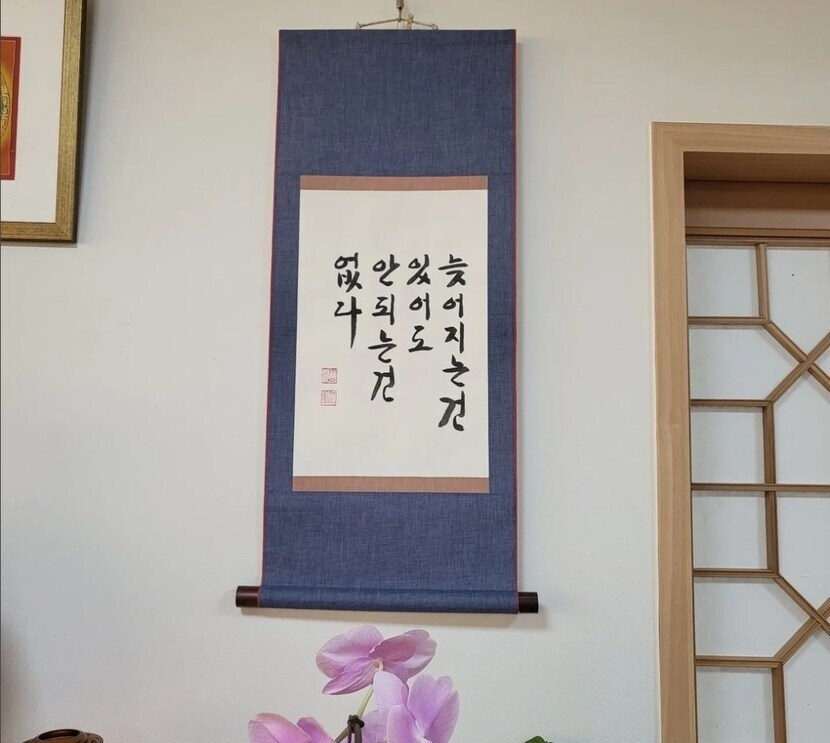 늦어지는건
있어도
안되는건
없다